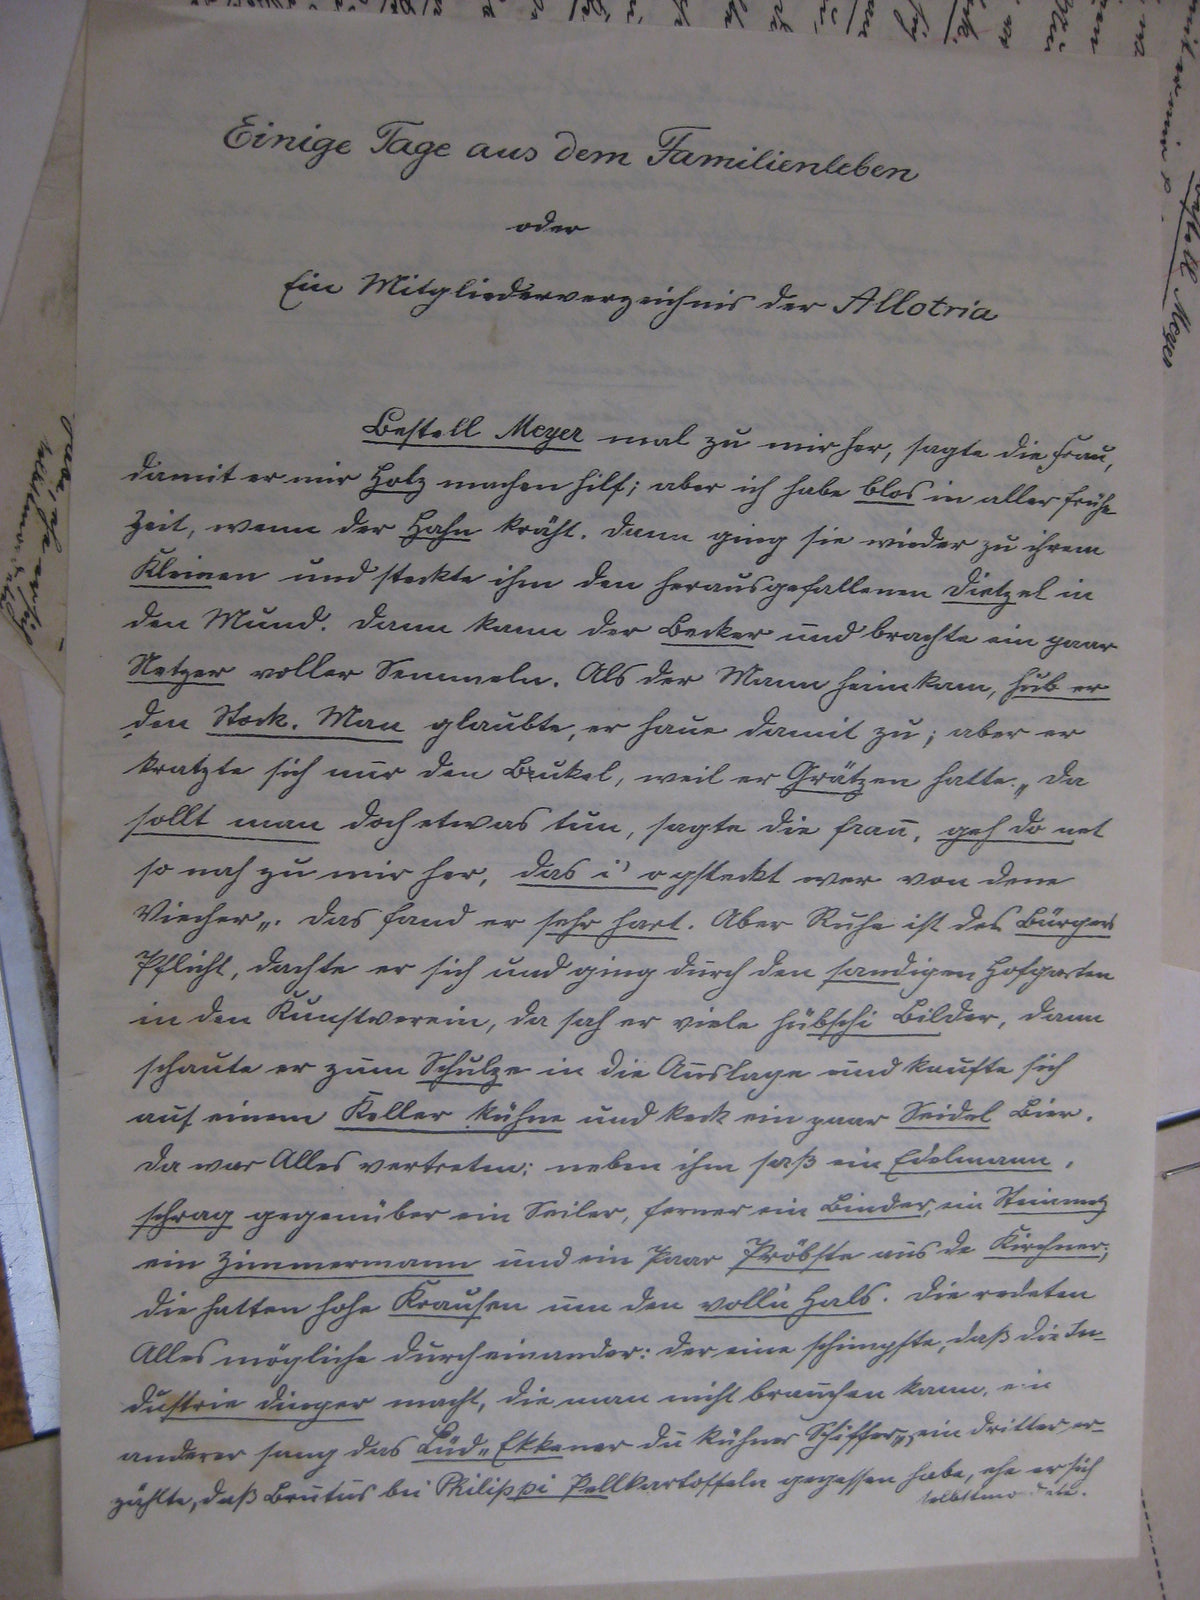 Einige Tage aus dem Familienleben
oder
Ein Mitgliederverzeichnis der Allotria
Bestell Meyer mal zu mir her, sagte die Frau,
damit er mir Holz machen hilf; aber ich habe blos in aller früher
Zeit, wenn der Hahn kräht. Dann ging sie wieder zu ihrem
Kleinen und steckte ihm den herausgefallenen Dietzel in
den Mund. Dann kam der Becker und brachte ein paar
Netzer voller Semmeln. Als der Mann heimkam, hub er
den Stock. Man glaubte, er haue damit zu; aber er
kratzte sich nur den Bukel, weil er Grätzen hatte. „Da
sollt man doch etwas tun, sagte die Frau, geh do net
so nah zu mir her, das i' ogsteckt wer von dene
Viecher„. Das fand er sehr hart. Aber Ruhe ist des Bürgers
Pflicht, dachte er sich und ging durch den sandigen Hofgarten
in den Kunstverein, da sah er viele hübschi Bilder, dann
schaute er zum Schulze in die Auslage und kaufte sich
auf einem Keller kühne und keck ein paar Seidel Bier.
Da war Alles vertreten: neben ihm saß ein Edelmann,
schrag gegenüber ein Seiler, ferner ein Binder, ein Steinmetz
ein Zimmermann und ein Paar Pröbste aus de Kirchner,
die hatten hohe Krausen um den volln Hals. Die redeten
Alles mögliche durcheinander: der eine schimpfte, daß die In-
dustrie dinger macht, die man nicht brauchen kann, ein
anderer sang das Lüd„Ekkener du kühner Schiffer„, ein dritter er-
zählte, daß Brutus bei Philippi Pellkartoffeln gegessen habe, ehe er sich
selbstmordete.
Bestell Meyer